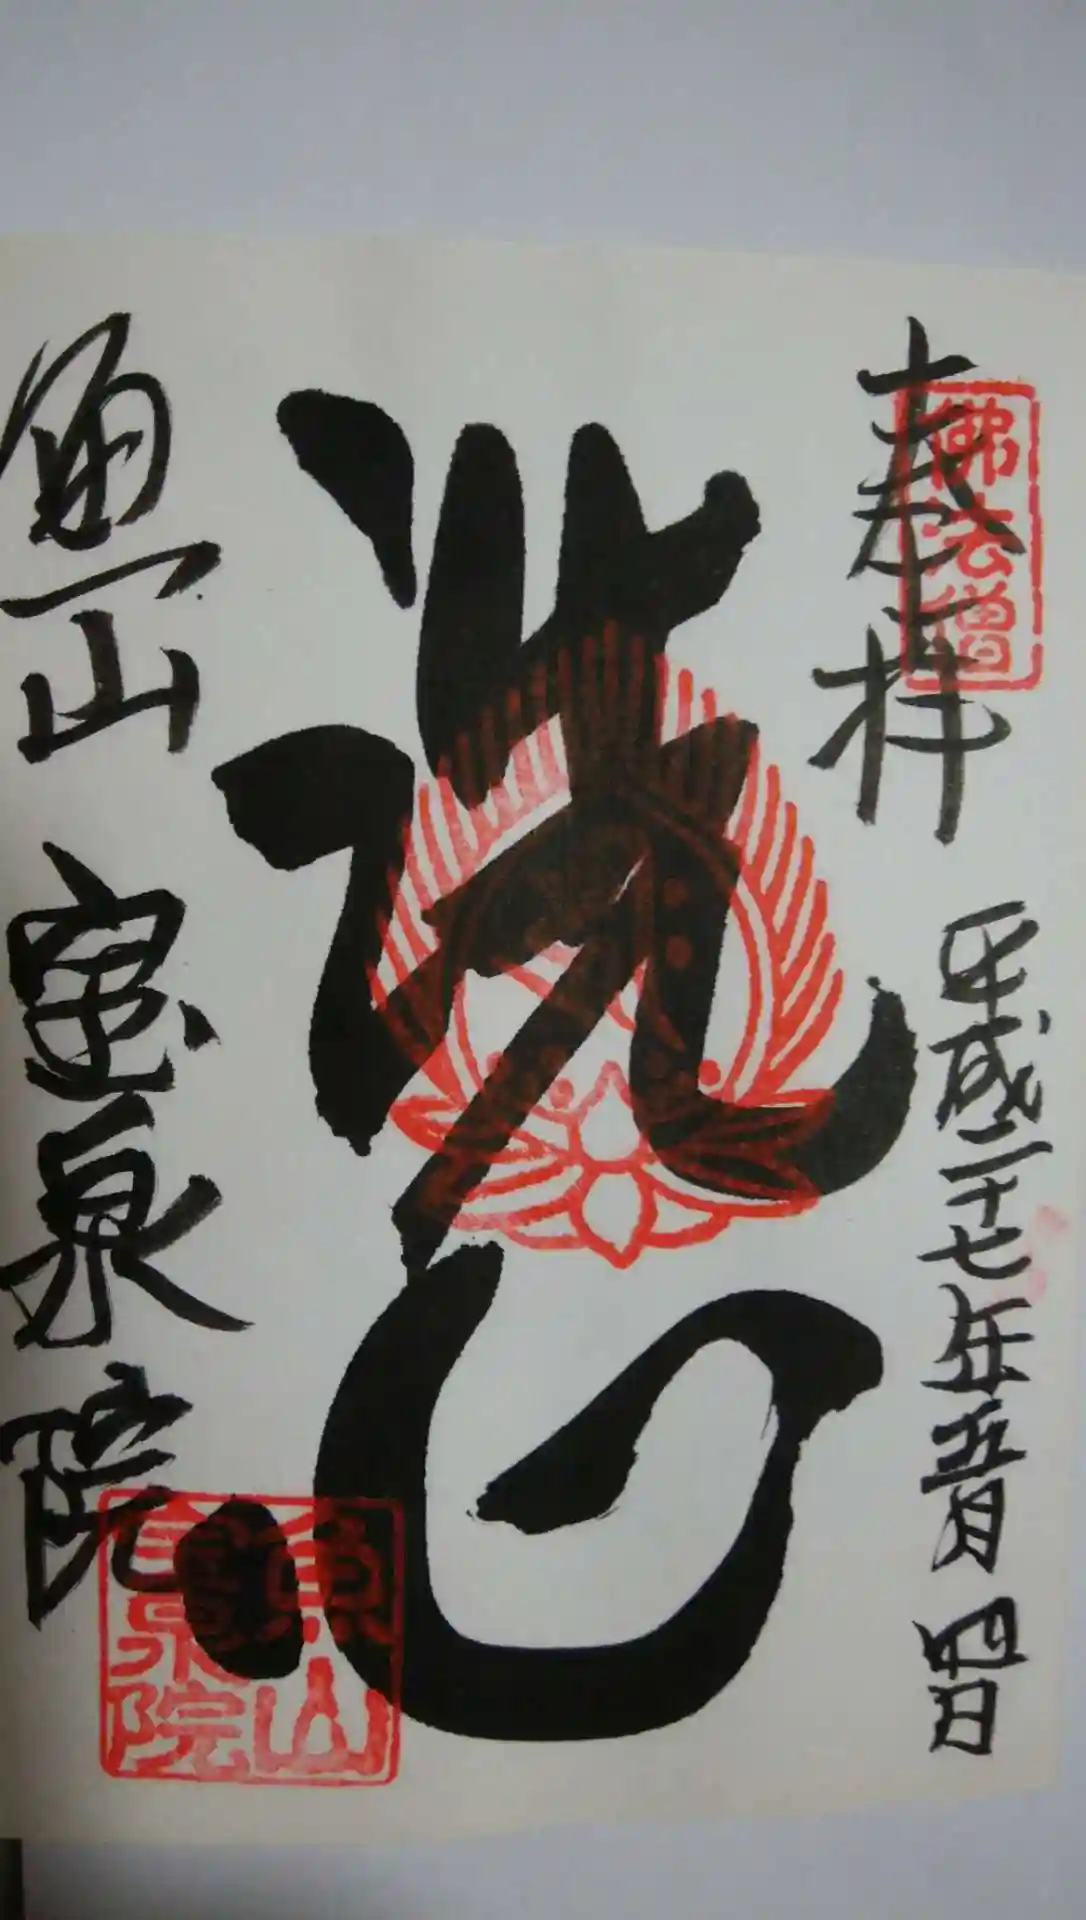 奉拝
佛法僧
平成二十七年五月四日
洗心
魚山 宝泉院
魚山
寳泉院